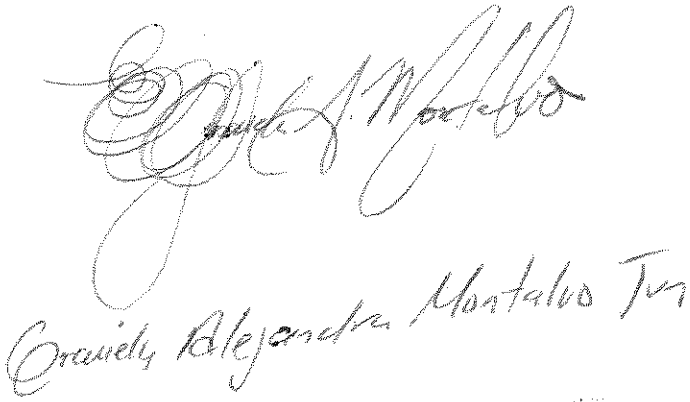 Graciela A. Montalvo
Graciela Alejandra Montalvo